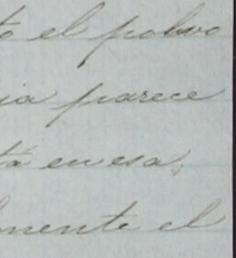 to el polvo
ia parece
tá en esa,
mente el